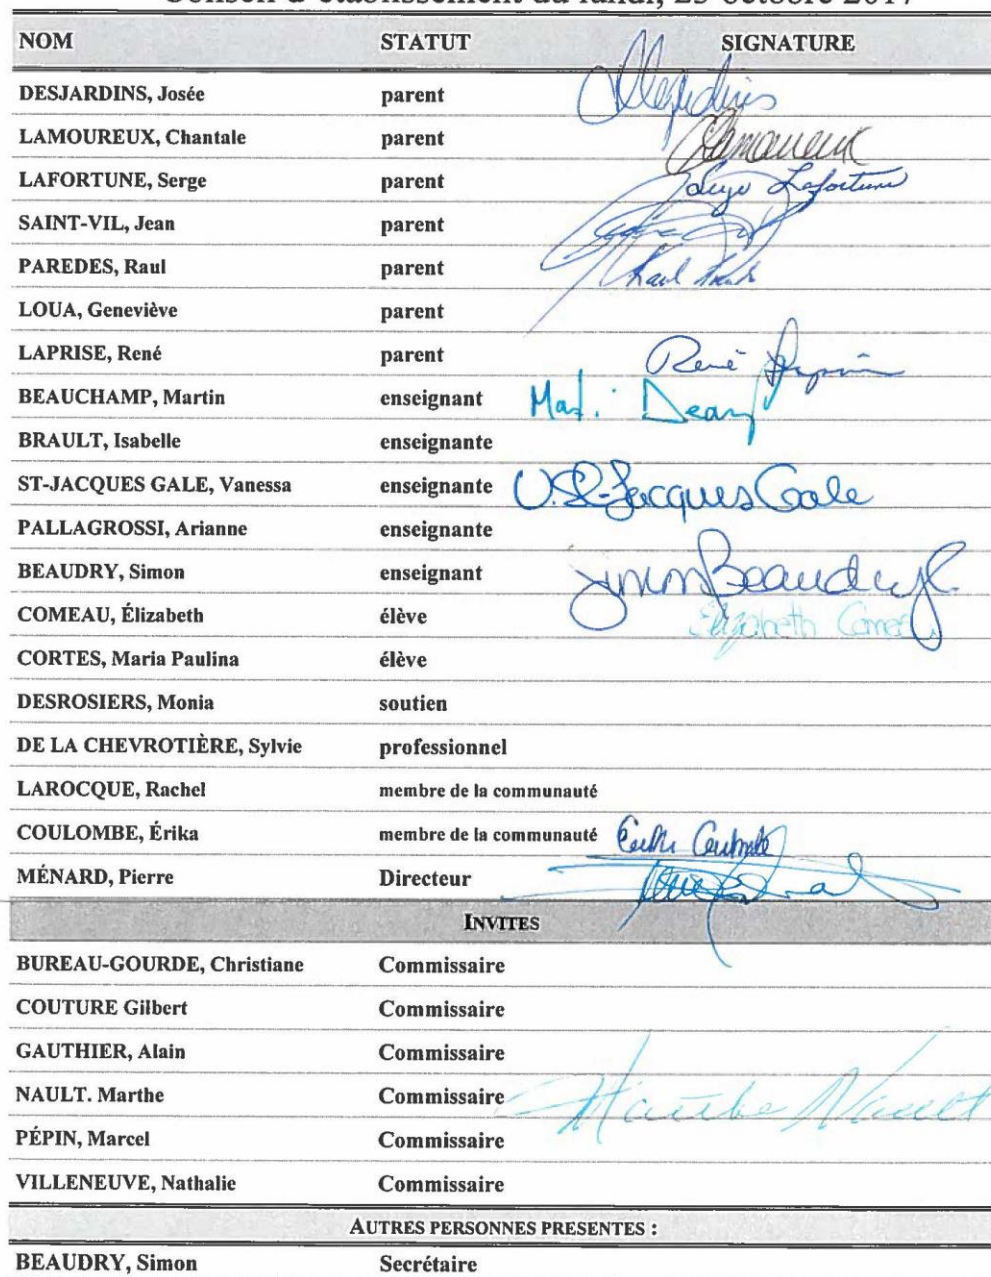 Conseil d'établissement du lundi, 23 octobre 2017
NOM STATUT SIGNATURE
DESJARDINS, Josée parent
LAMOUREUX, Chantale parent
LAFORTUNE, Serge parent Lafortune
SAINT-VIL, Jean parent
PAREDES, Raul parent Raul
LOUA, Geneviève parent
LAPRISE, René parent René
BEAUCHAMP, Martin enseignant
BRAULT, Isabelle enseignante
ST-JACQUES GALE, Vanessa enseignante V. St-Jacques Gale
PALLAGROSSI, Arianne enseignante
BEAUDRY, Simon enseignant Simon Beaudry
COMEAU, Élizabeth élève Elizabeth Comeau
CORTES, Maria Paulina élève
DESROSIERS, Monia soutien
DE LA CHEVROTIÈRE, Sylvie professionnel
LAROCQUE, Rachel membre de la communauté
COULOMBE, Érika membre de la communauté
MÉNARD, Pierre Directeur
INVITES
BUREAU-GOURDE, Christiane Commissaire
COUTURE Gilbert Commissaire
GAUTHIER, Alain Commissaire
NAULT. Marthe Commissaire Marthe Nault
PÉPIN, Marcel Commissaire
VILLENEUVE, Nathalie Commissaire
AUTRES PERSONNES PRESENTES :
BEAUDRY, Simon Secrétaire